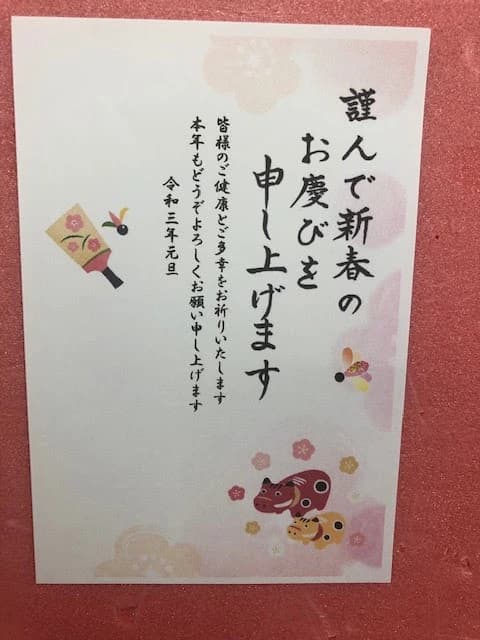 謹んで新春の
お慶びを
申し上げます
皆様のご健康とご多幸をお祈りいたします
本年もどうぞよろしくお願い申し上げます
令和三年元旦